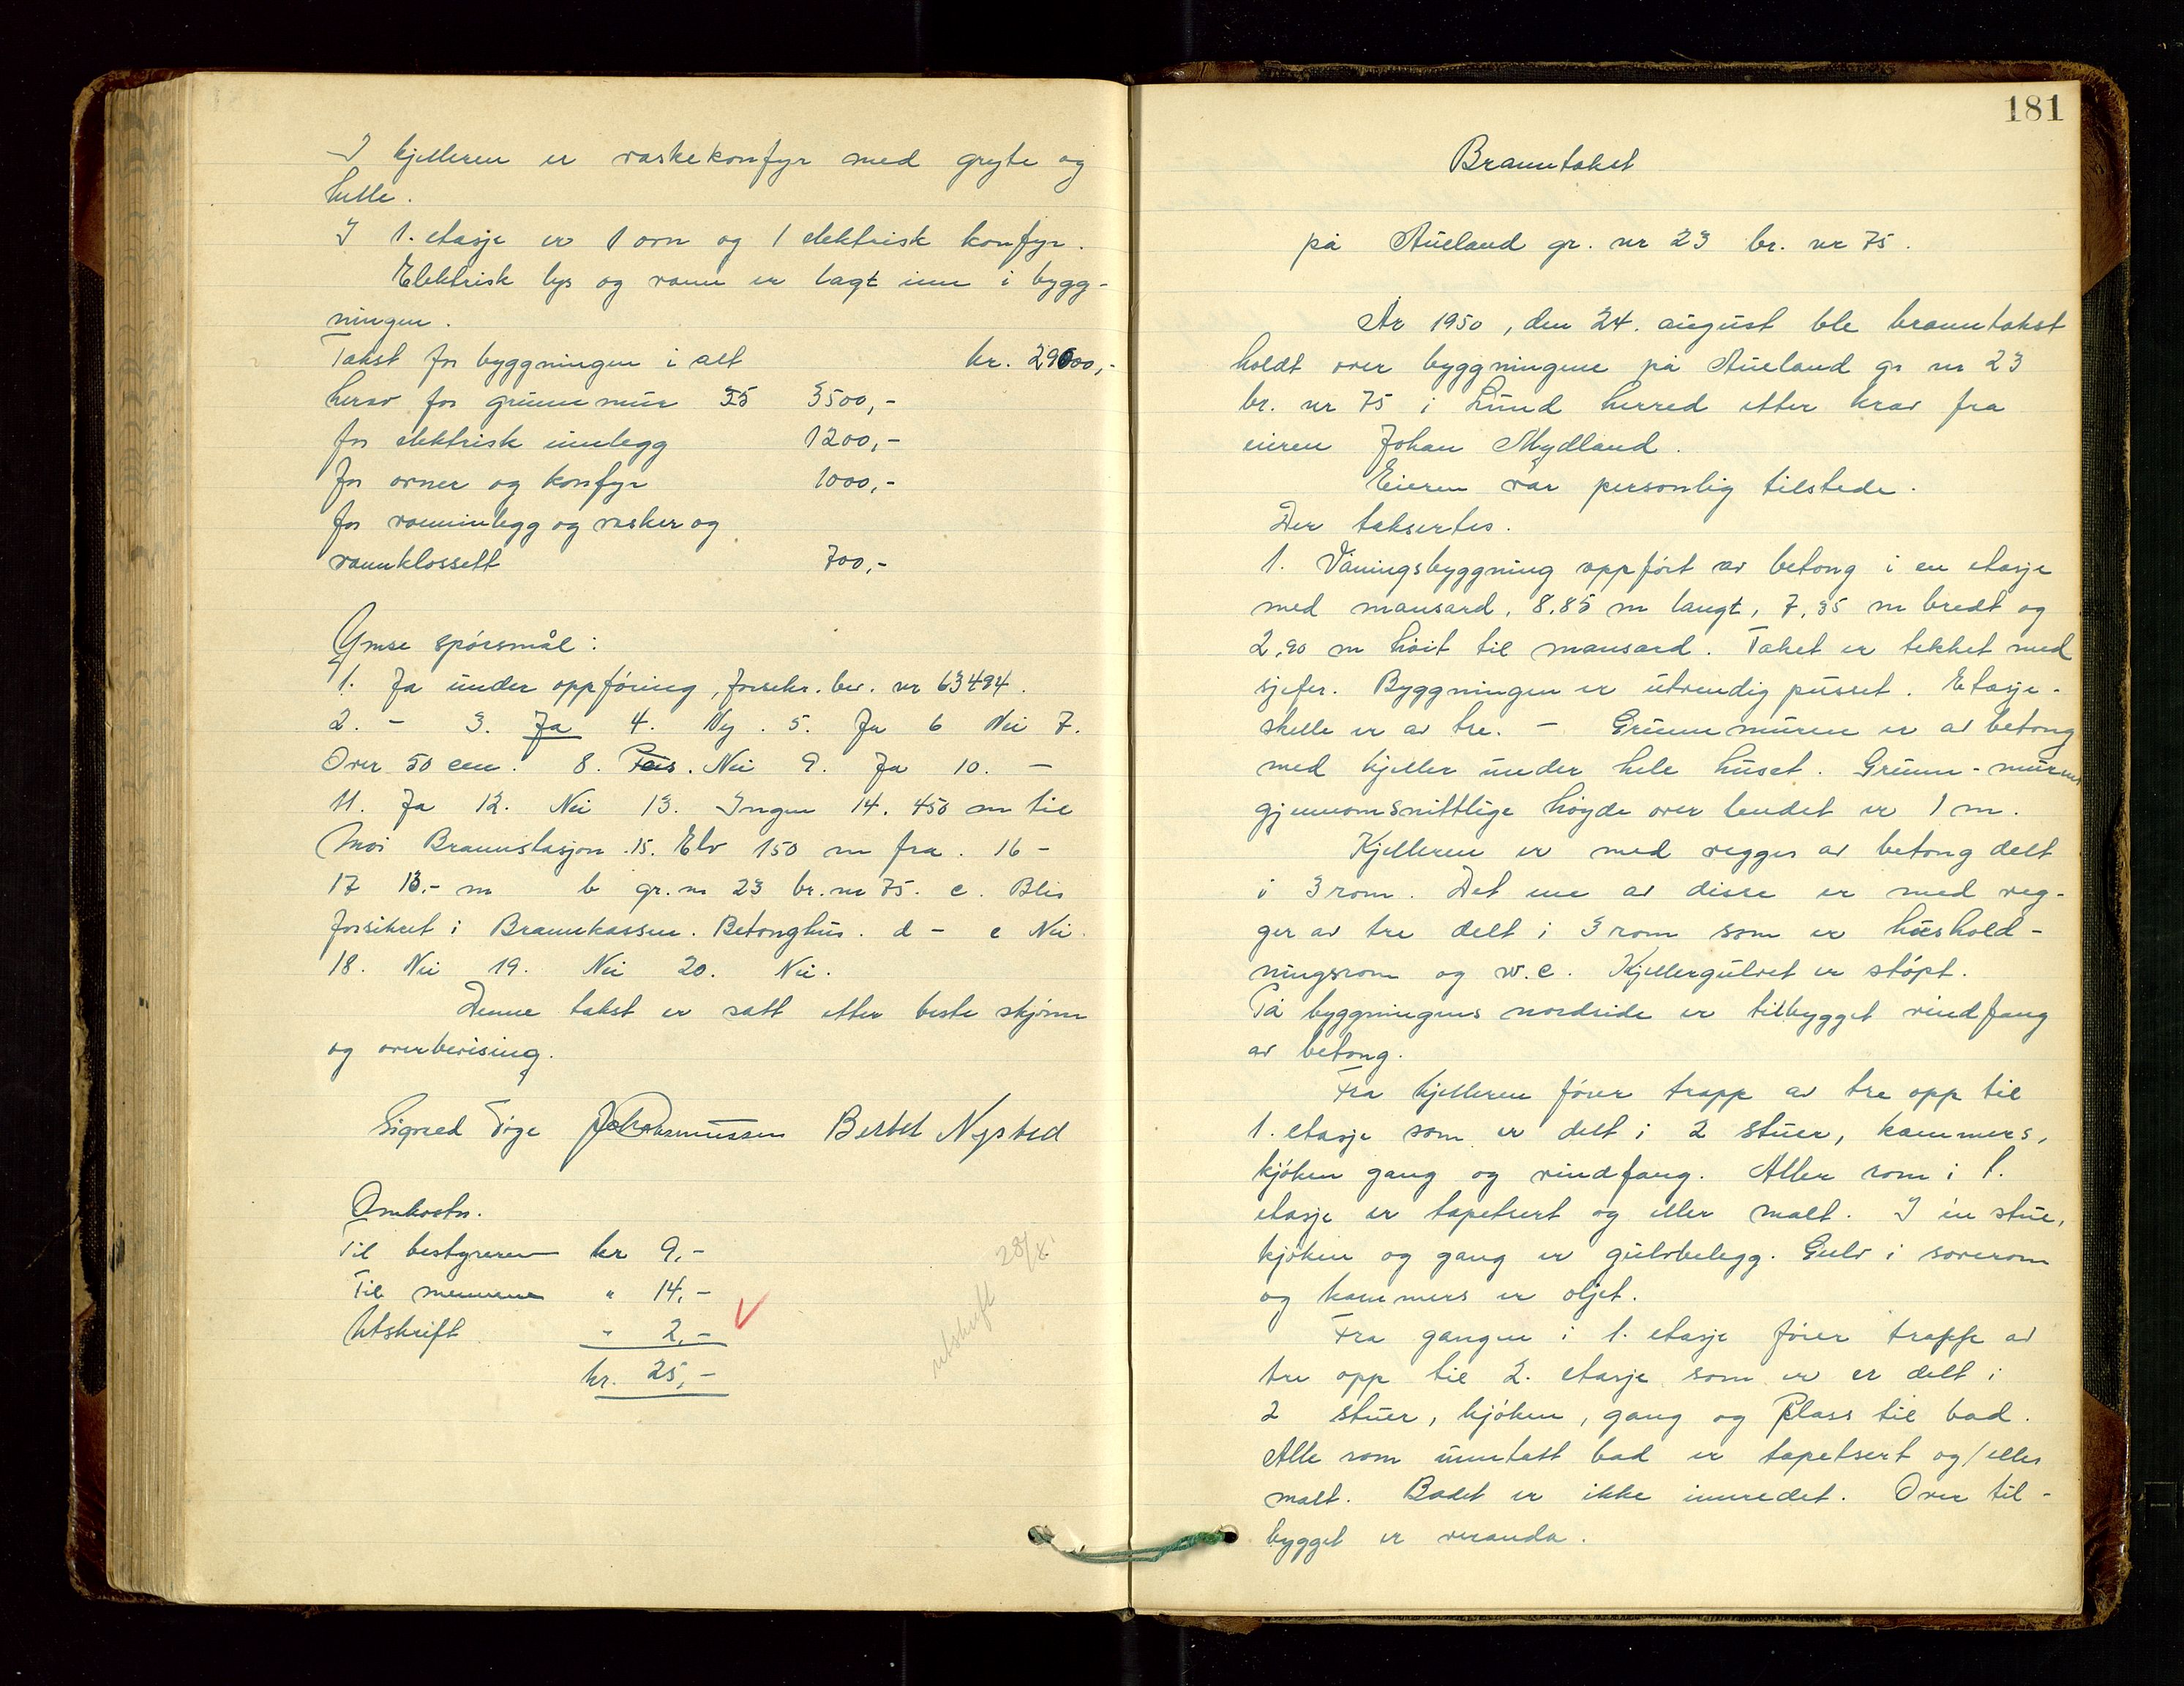 I kjelleren er vaskekomfyr med gryte og
helle.
I 1. etasje er 1 ovn og 1 elektrisk komfyr.
Elektrisk lys og vann er lagt inn i bygg-
ningen.
Takst for byggningen i alt kr. 29000,-
herav for grunnmur 35 3500,-
for elektrisk innlegg 1200,-
for ovner og komfyr 1000,-
for vanninlegg og vasker og
vannklossett 700,-
Ymse spörsmål:
1. Ja under oppföring, forsikr. bev. nr 63494.
2. - 3. Ja 4. Ny. 5. Ja 6 Nei 7.
Over 50 cm. 8. Nei 9. Ja 10. -
11. Ja 12. Nei 13. Ingen 14. 450 m til
Moi Brannstasjon. 15. Elv 150 m fra. 16 -
17 13.- m b gr. nr 23 br. nr 75. c. Blir
forsikret i Brannkassen. Betonghus. d - e Nei.
18. Nei 19. Nei 20. Nei.
Denne takst er satt etter beste skjönn
og overbevising.
Sigved Berbet Nysted
Omkostn.
Til bestyreren kr 9,-
Til mennene " 14,-
Utskrift " 2,-
kr. 25,-
utskrift 28/8
181
Branntakst
på Aueland gr. nr 23 br. nr 75.
År 1950, den 24. august ble branntakst
holdt over byggningene på Aueland gr nr 23
br. nr 75 i Lund herred etter krav fra
eieren Johan Mydland.
Eieren var personlig tilstede.
Der taksertes.
1. Våningsbyggning oppfört av betong i en etasje
med mansard, 8,85 m langt, 7,35 m bredt og
2,90 m höit til mansard. Taket er tekket med
sjefer. Byggningen er utvendig pusset. Etasje-
skille er av tre. - Grunnmuren er av betong
med kjeller under hele huset. Grunn-murens
gjennomsnittlige höyde over lendet er 1 m.
Kjelleren er med vegger av betong delt
i 3 rom. Det ene av disse er med veg-
ger av tre delt i 3 rom som er hushold-
ningsrom og w.c. Kjellergulvet er stöpt.
På byggningens nordside er tilbygget vindfang
av betong.
Fra kjelleren förer trapp av tre opp til
1. etasje som er delt i 2 stuer, kammers,
kjöken gang og vindfang. Aller rom i 1.
etasje er tapetsert og eller malt. I en stue,
kjöken og gang er gulvbelegg. Gulv i soverom
og kammers er oljet.
Fra gangen i 1. etasje förer trapp av
tre opp til 2. etasje som er er delt i
2 stuer, kjöken, gang og Plass til bad.
Alle rom unntatt bad er tapetsert og/eller
malt. Badet er ikke innredet. Over til-
bygget er veranda.